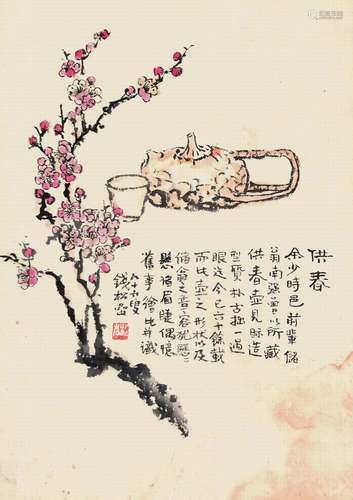 供春
余少時邑前輩儲
翁南強曾以所藏
供春壺見眎造
型質朴古拙一過
眼迄今已六十餘載
而此壺之形狀以及
儲翁之音容犹歷二
懸諸眉睫偶憶
舊事繪此并識
叟
錢松嵒